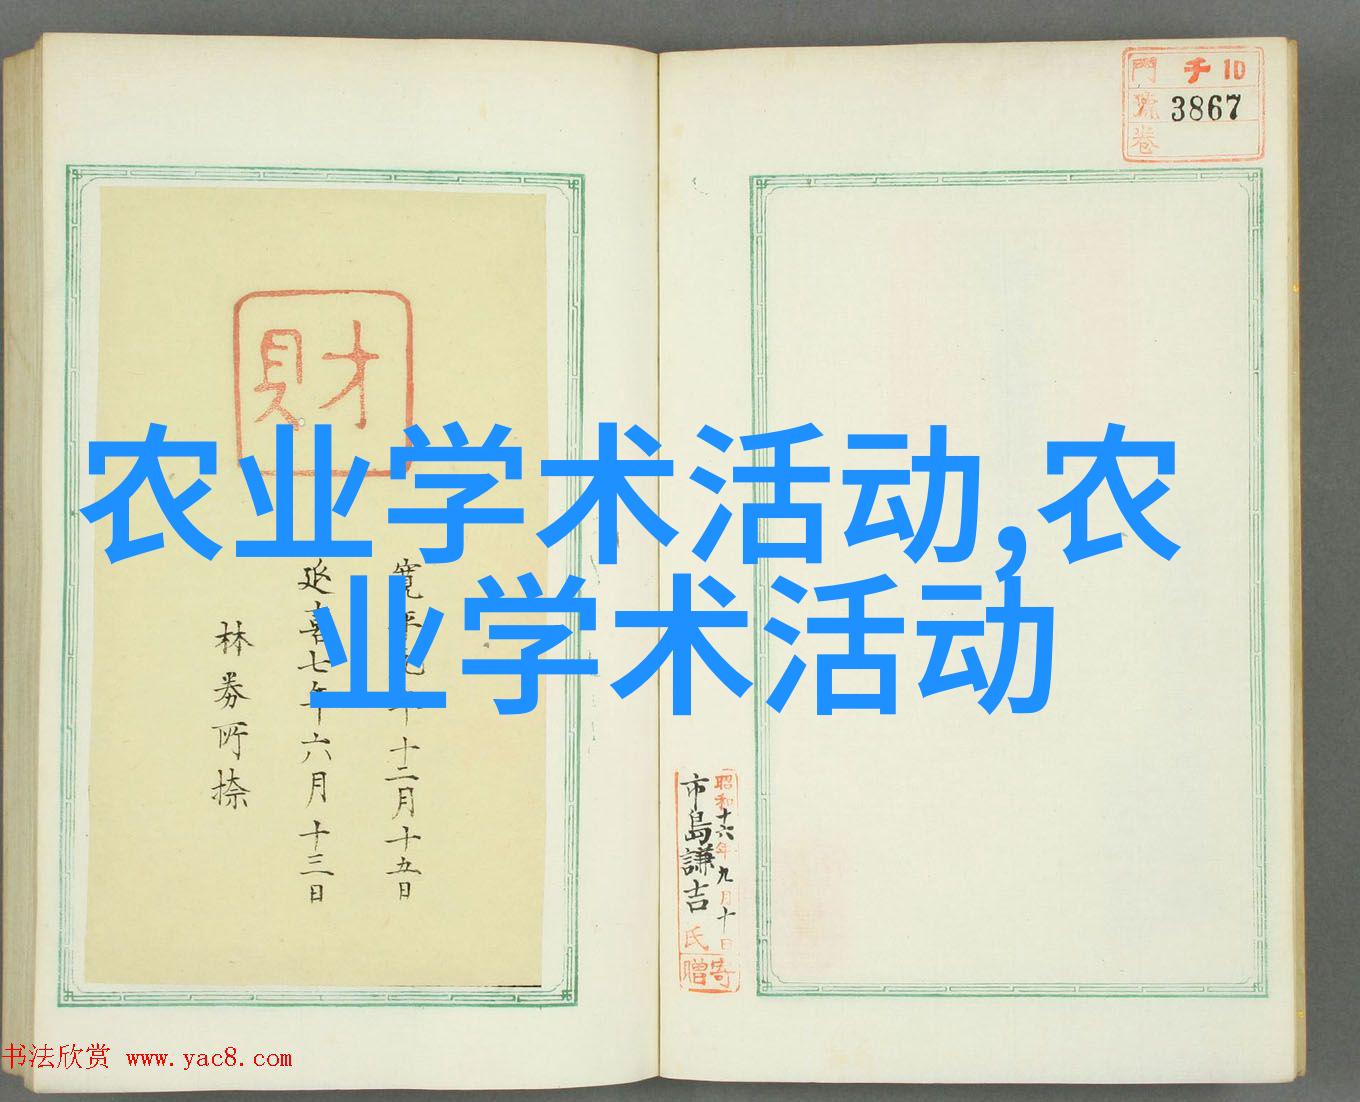 門 千 10
號 3867
卷
財
寛平元年十二月十五日
延喜七年六月十三日
林券所捺
农业学术活动,农
业学术活动
昭和十六年九月十日
市島謙吉氏
寄贈
书法欣赏 www.yac8.com